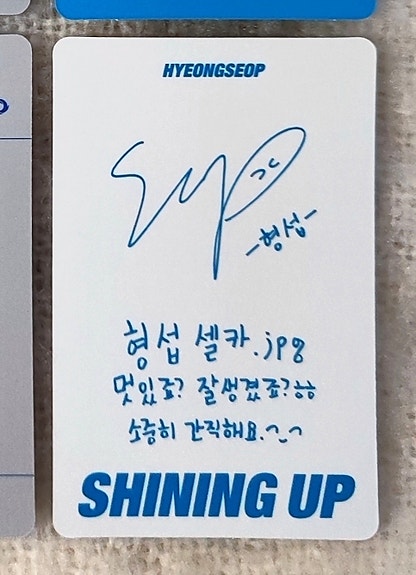 HYEONGSEOP
-형섭-
형섭 셀카.jpg
멋있죠? 잘생겼죠?ㅎㅎ
소중히 간직해요.^_^
SHINING UP